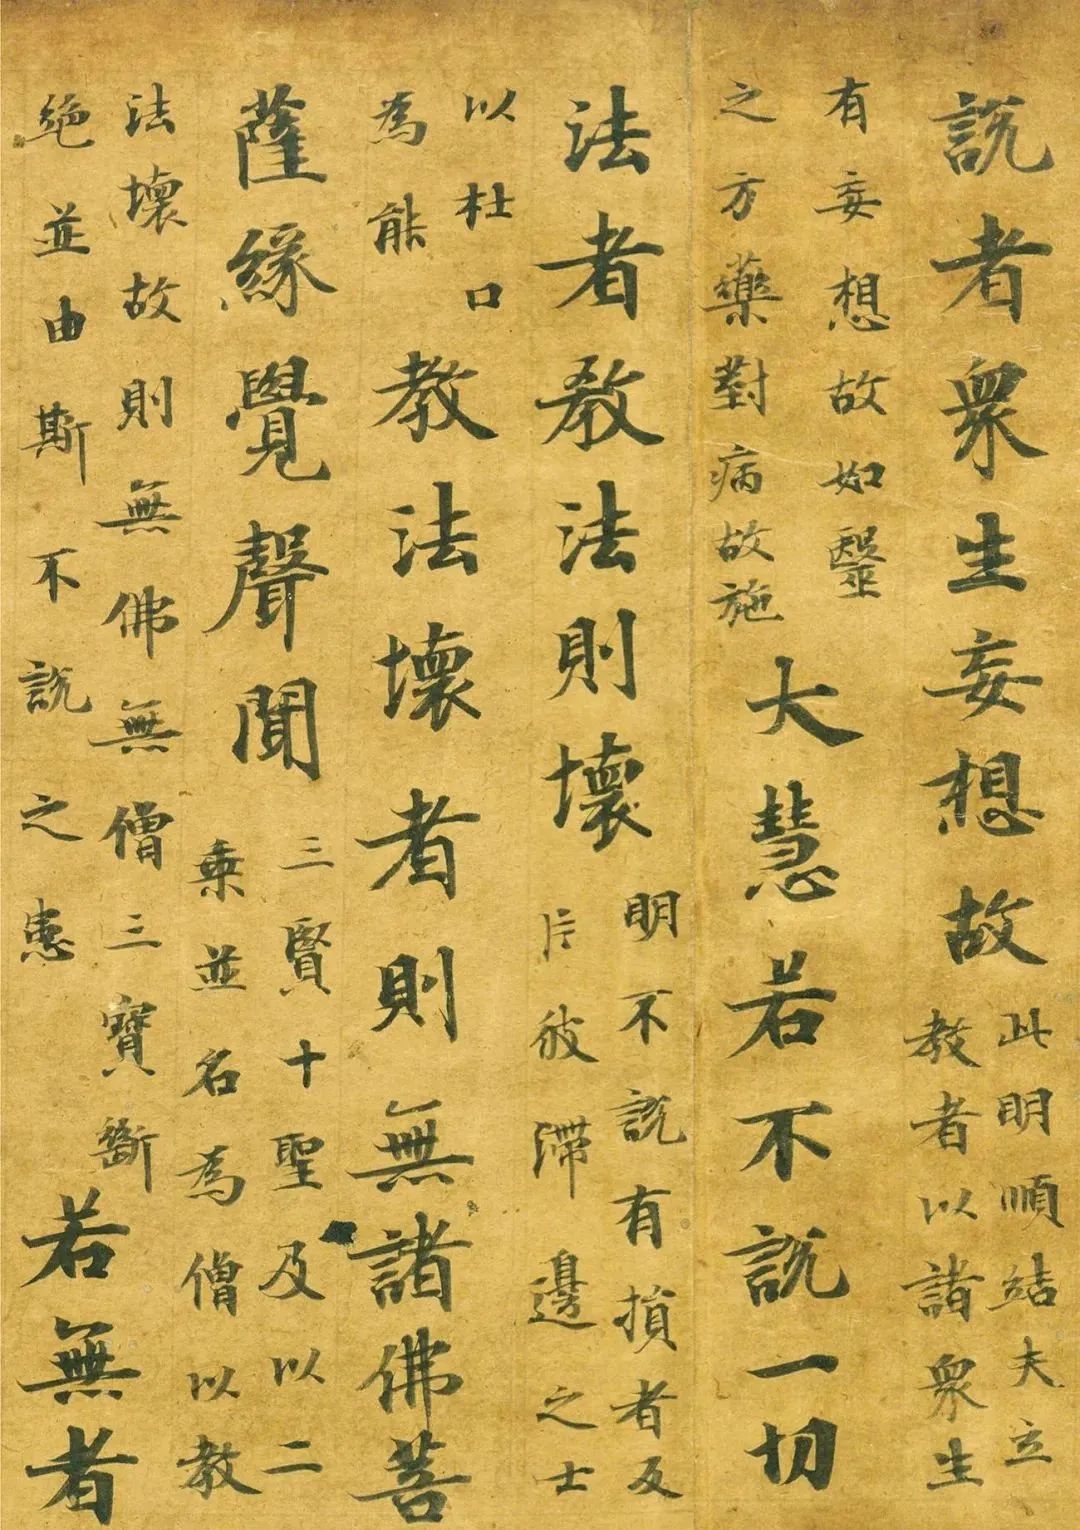 說者衆生妄想故
此明順結夫立
教者以諸衆生
有妄想故如毉
之方藥對病故施
大慧若不說一切
法者教法則壞
明不說有損者及
斥彼滯邊之士
以杜口
為能
教法壞者則無諸佛菩
薩緣覺聲聞
三賢十聖及以二
乘並名為僧以教
法壞故則無佛無僧三寶斷
絕並由斯不說之患
若無者